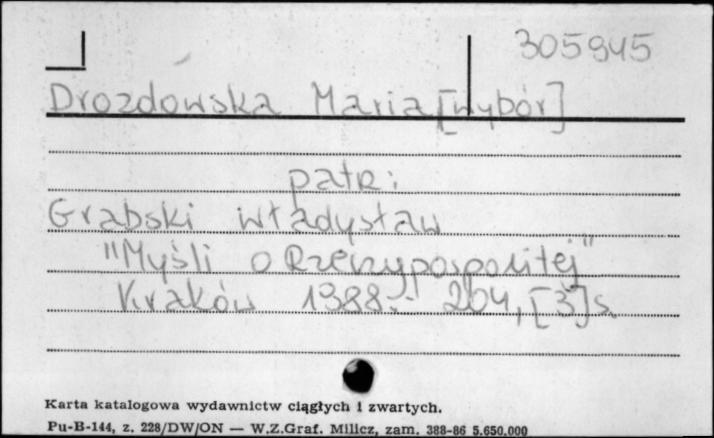 305945
Drozdowska Maria [wybór]
patrz:
Grabski Władysław
"Myśli o Rzeczypospolitej"
Kraków 1988.- 204, [3] s.
Karta katalogowa wydawnictw ciągłych i zwartych.
Pu-B-144, z. 228/DW/ON — W.Z.Graf. Milicz, zam. 388-86 5.650.000